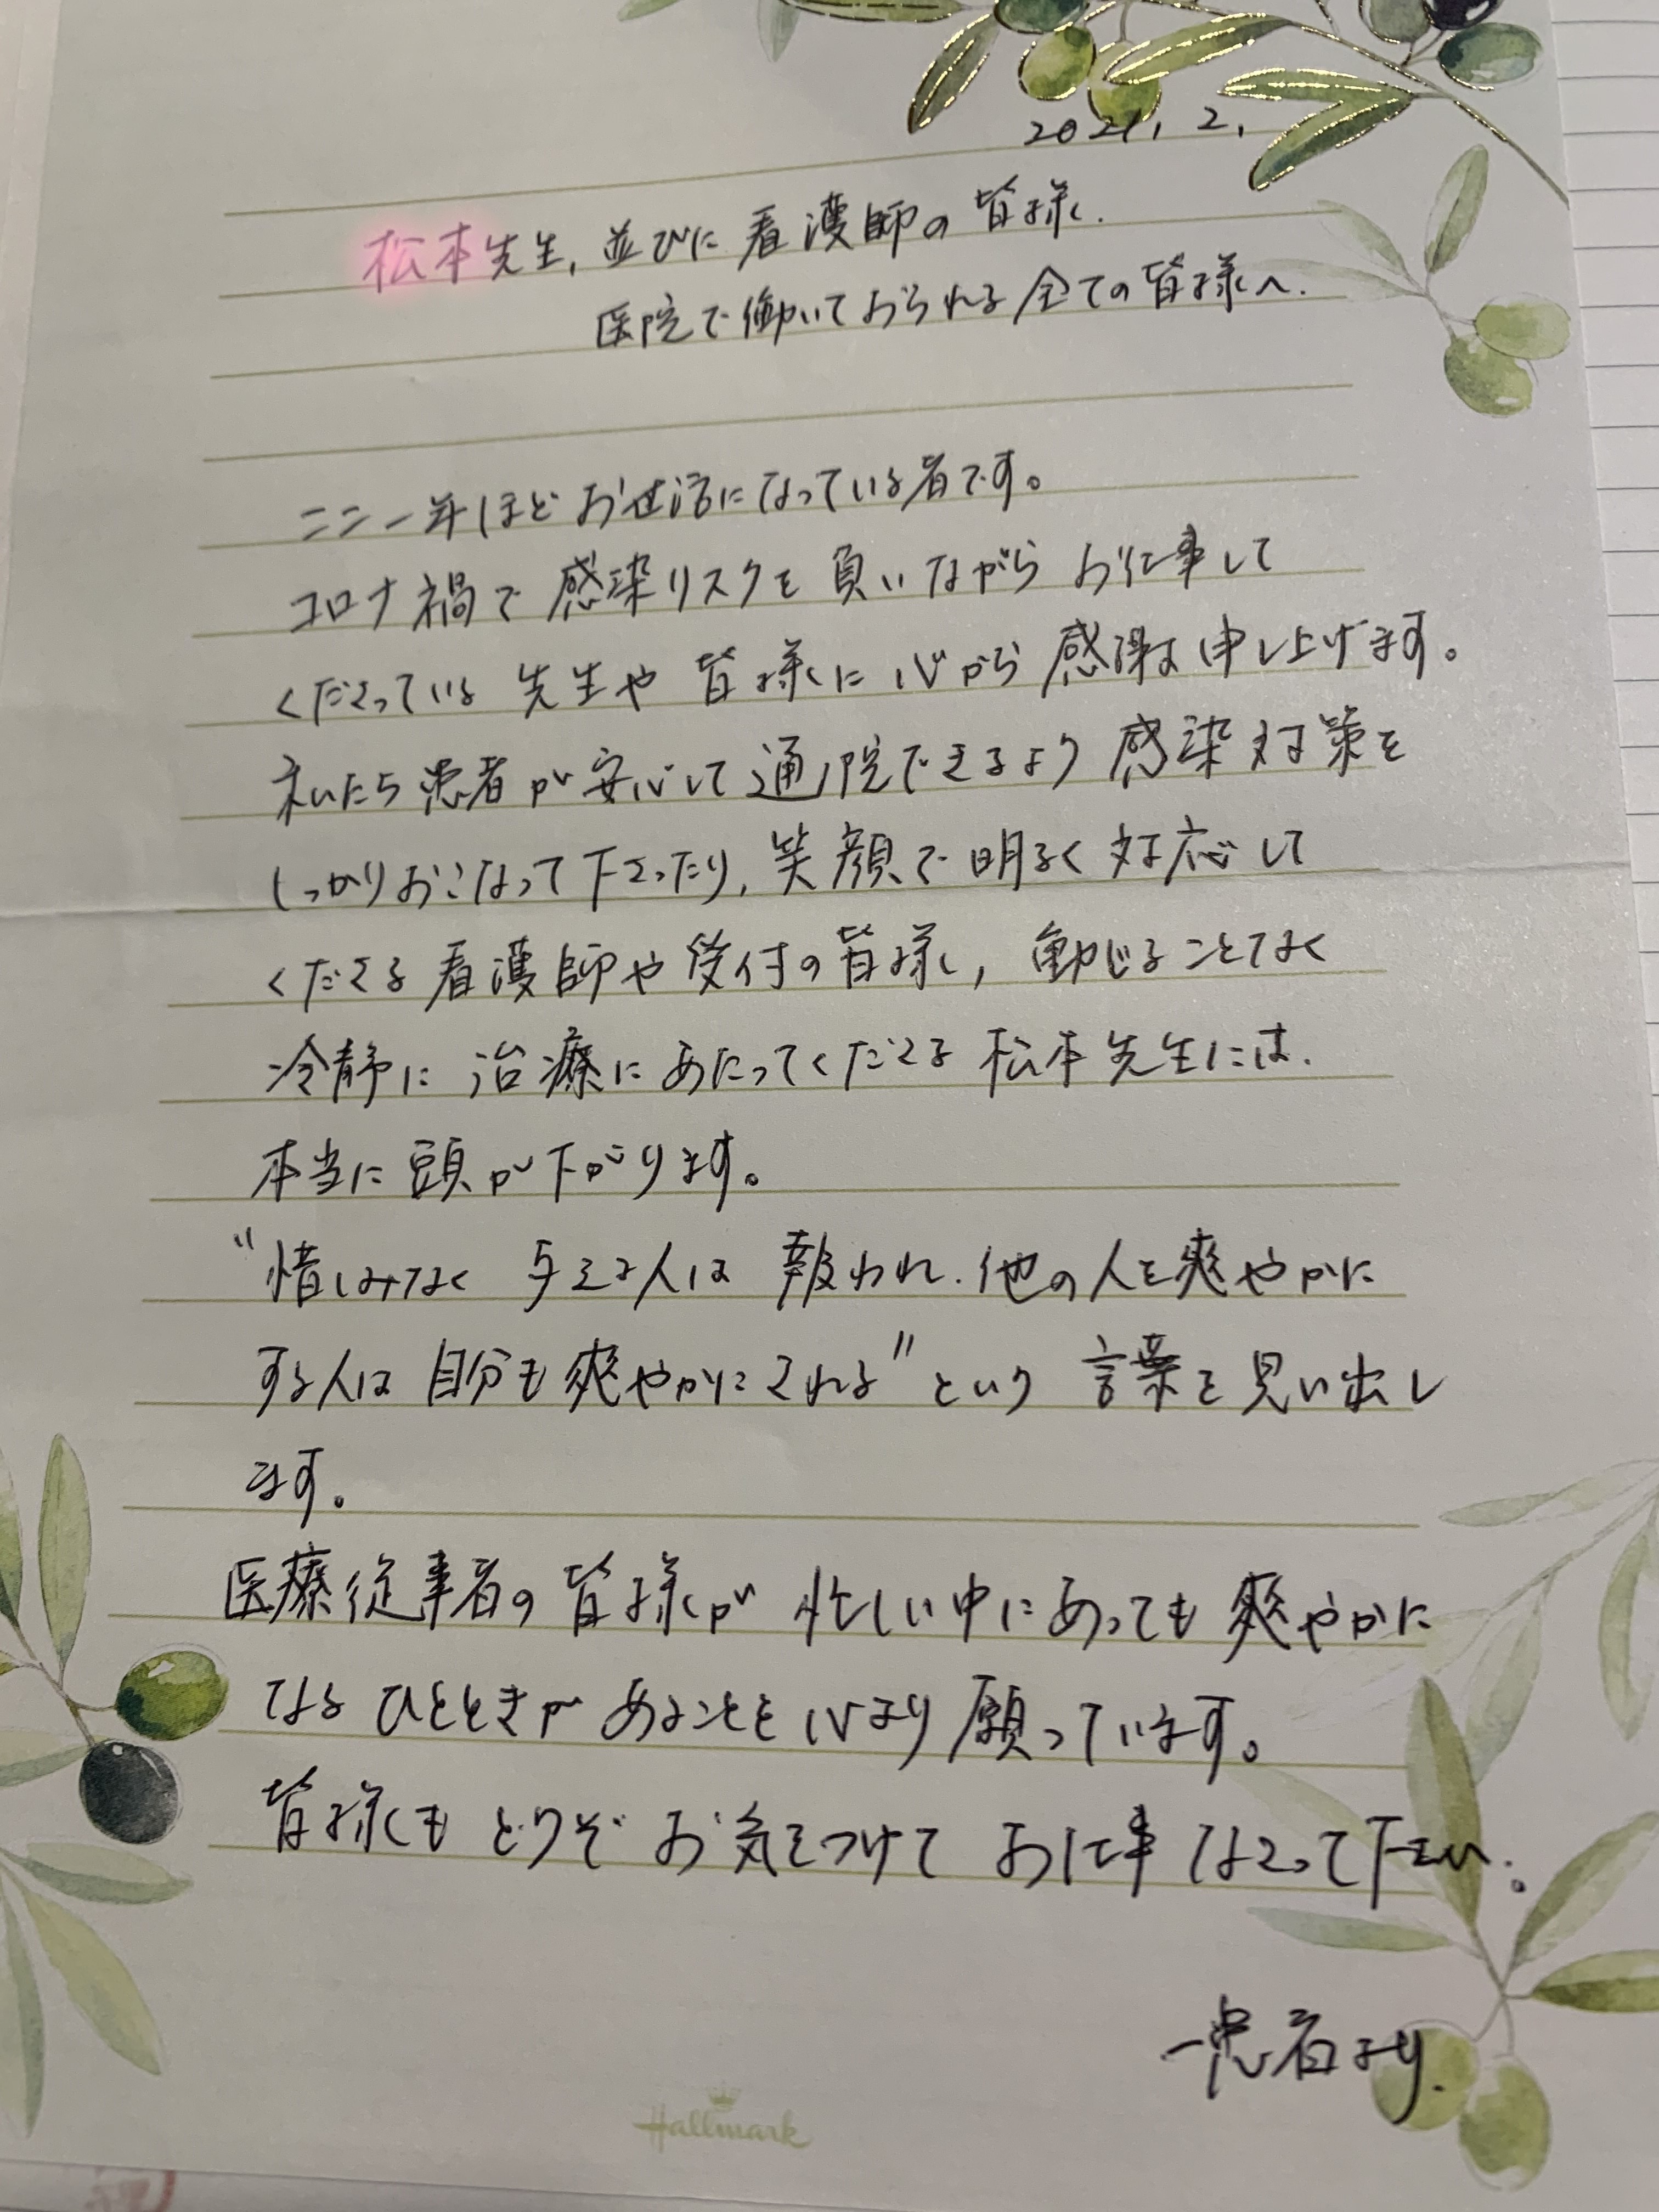 2021. 2.
松本先生, 並びに看護師の皆様.
医院で働いておられる全ての皆様へ.
ここ一年ほどお世話になっている者です。
コロナ禍で感染リスクを負いながらお仕事して
くださっている先生や皆様に心から感謝申し上げます。
私たち患者が安心して通院できるよう感染対策を
しっかりおこなって下さったり, 笑顔で明るく対応して
くださる看護師や受付の皆様, 動じることなく
冷静に治療にあたってくださる松本先生には.
本当に頭が下がります。
"惜しみなく与える人は報われ. 他の人を爽やかに
する人は自分も爽やかにされる"という言葉を思い出し
ます。
医療従事者の皆様が忙しい中にあっても爽やかに
なるひとときがあることを心より願っています。
皆様もどうぞお気をつけてお仕事なさって下さい。
一患者より.
Hallmark